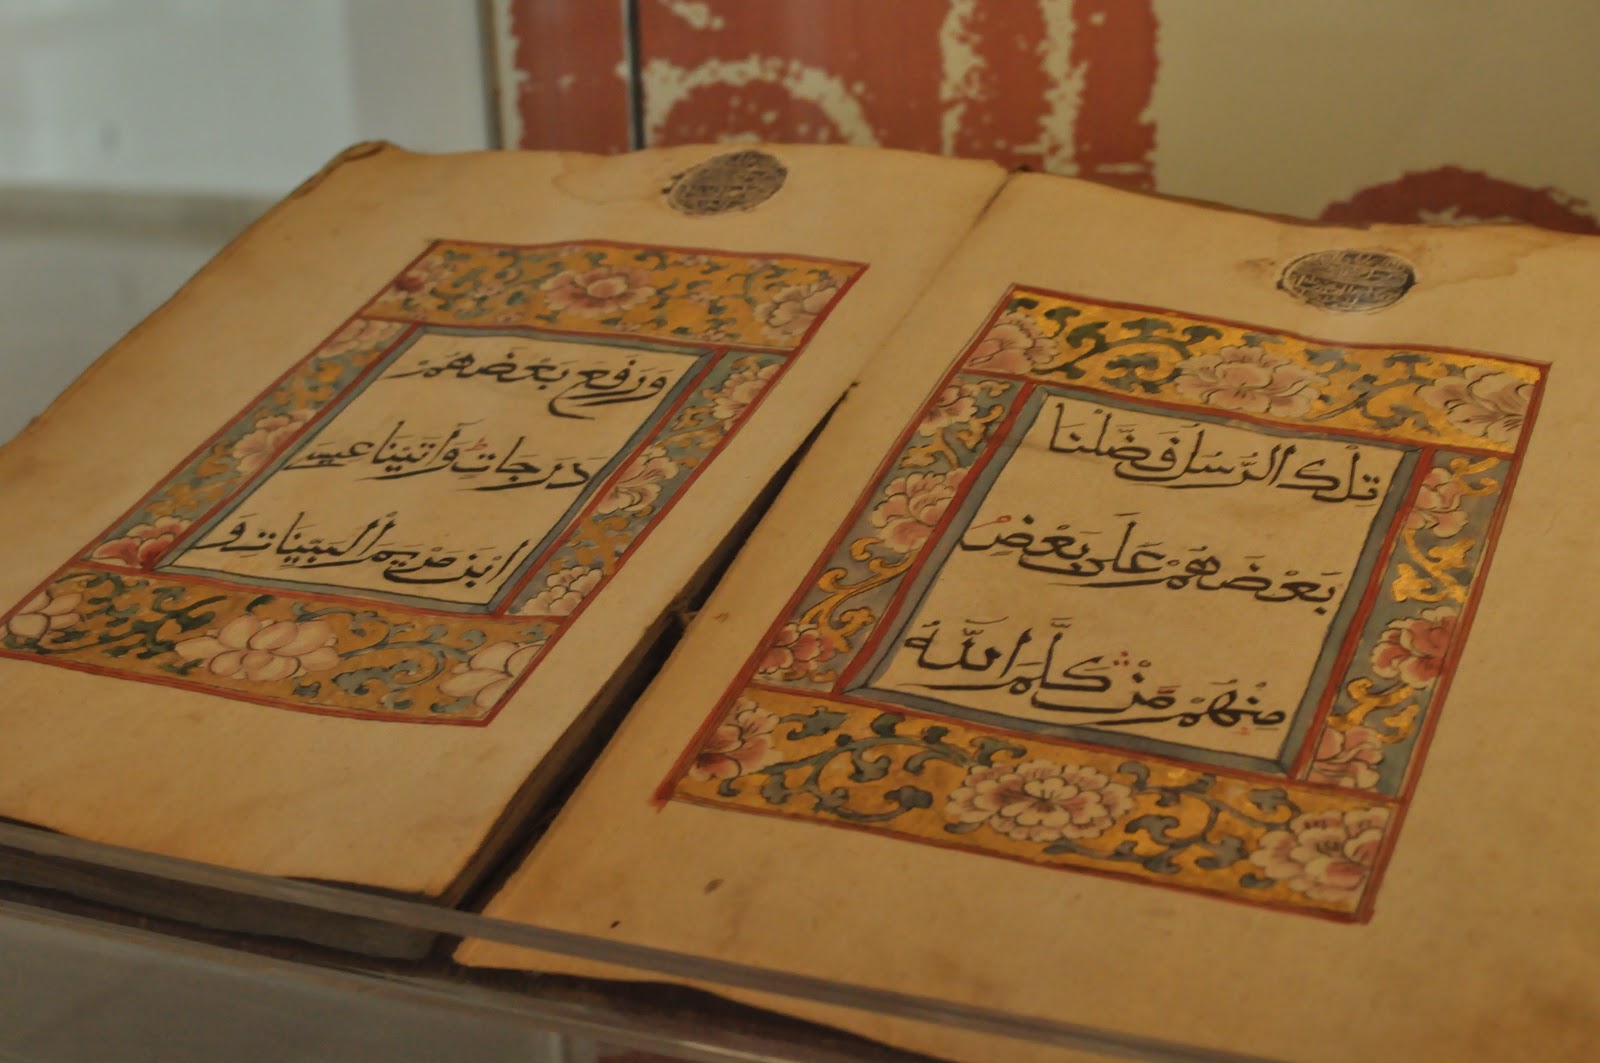 تِلْكَ الرُّسُلُ فَضَّلْنَا
بَعْضَهُمْ عَلَى بَعْضٍ
مِنْهُمْ مَنْ كَلَّمَ اللَّهُ
وَرَفَعَ بَعْضَهُمْ
دَرَجَاتٍ وَأَتَيْنَا عِيسَى
ابْنَ مَرْيَمَ الْبَيِّنَاتِ وَ